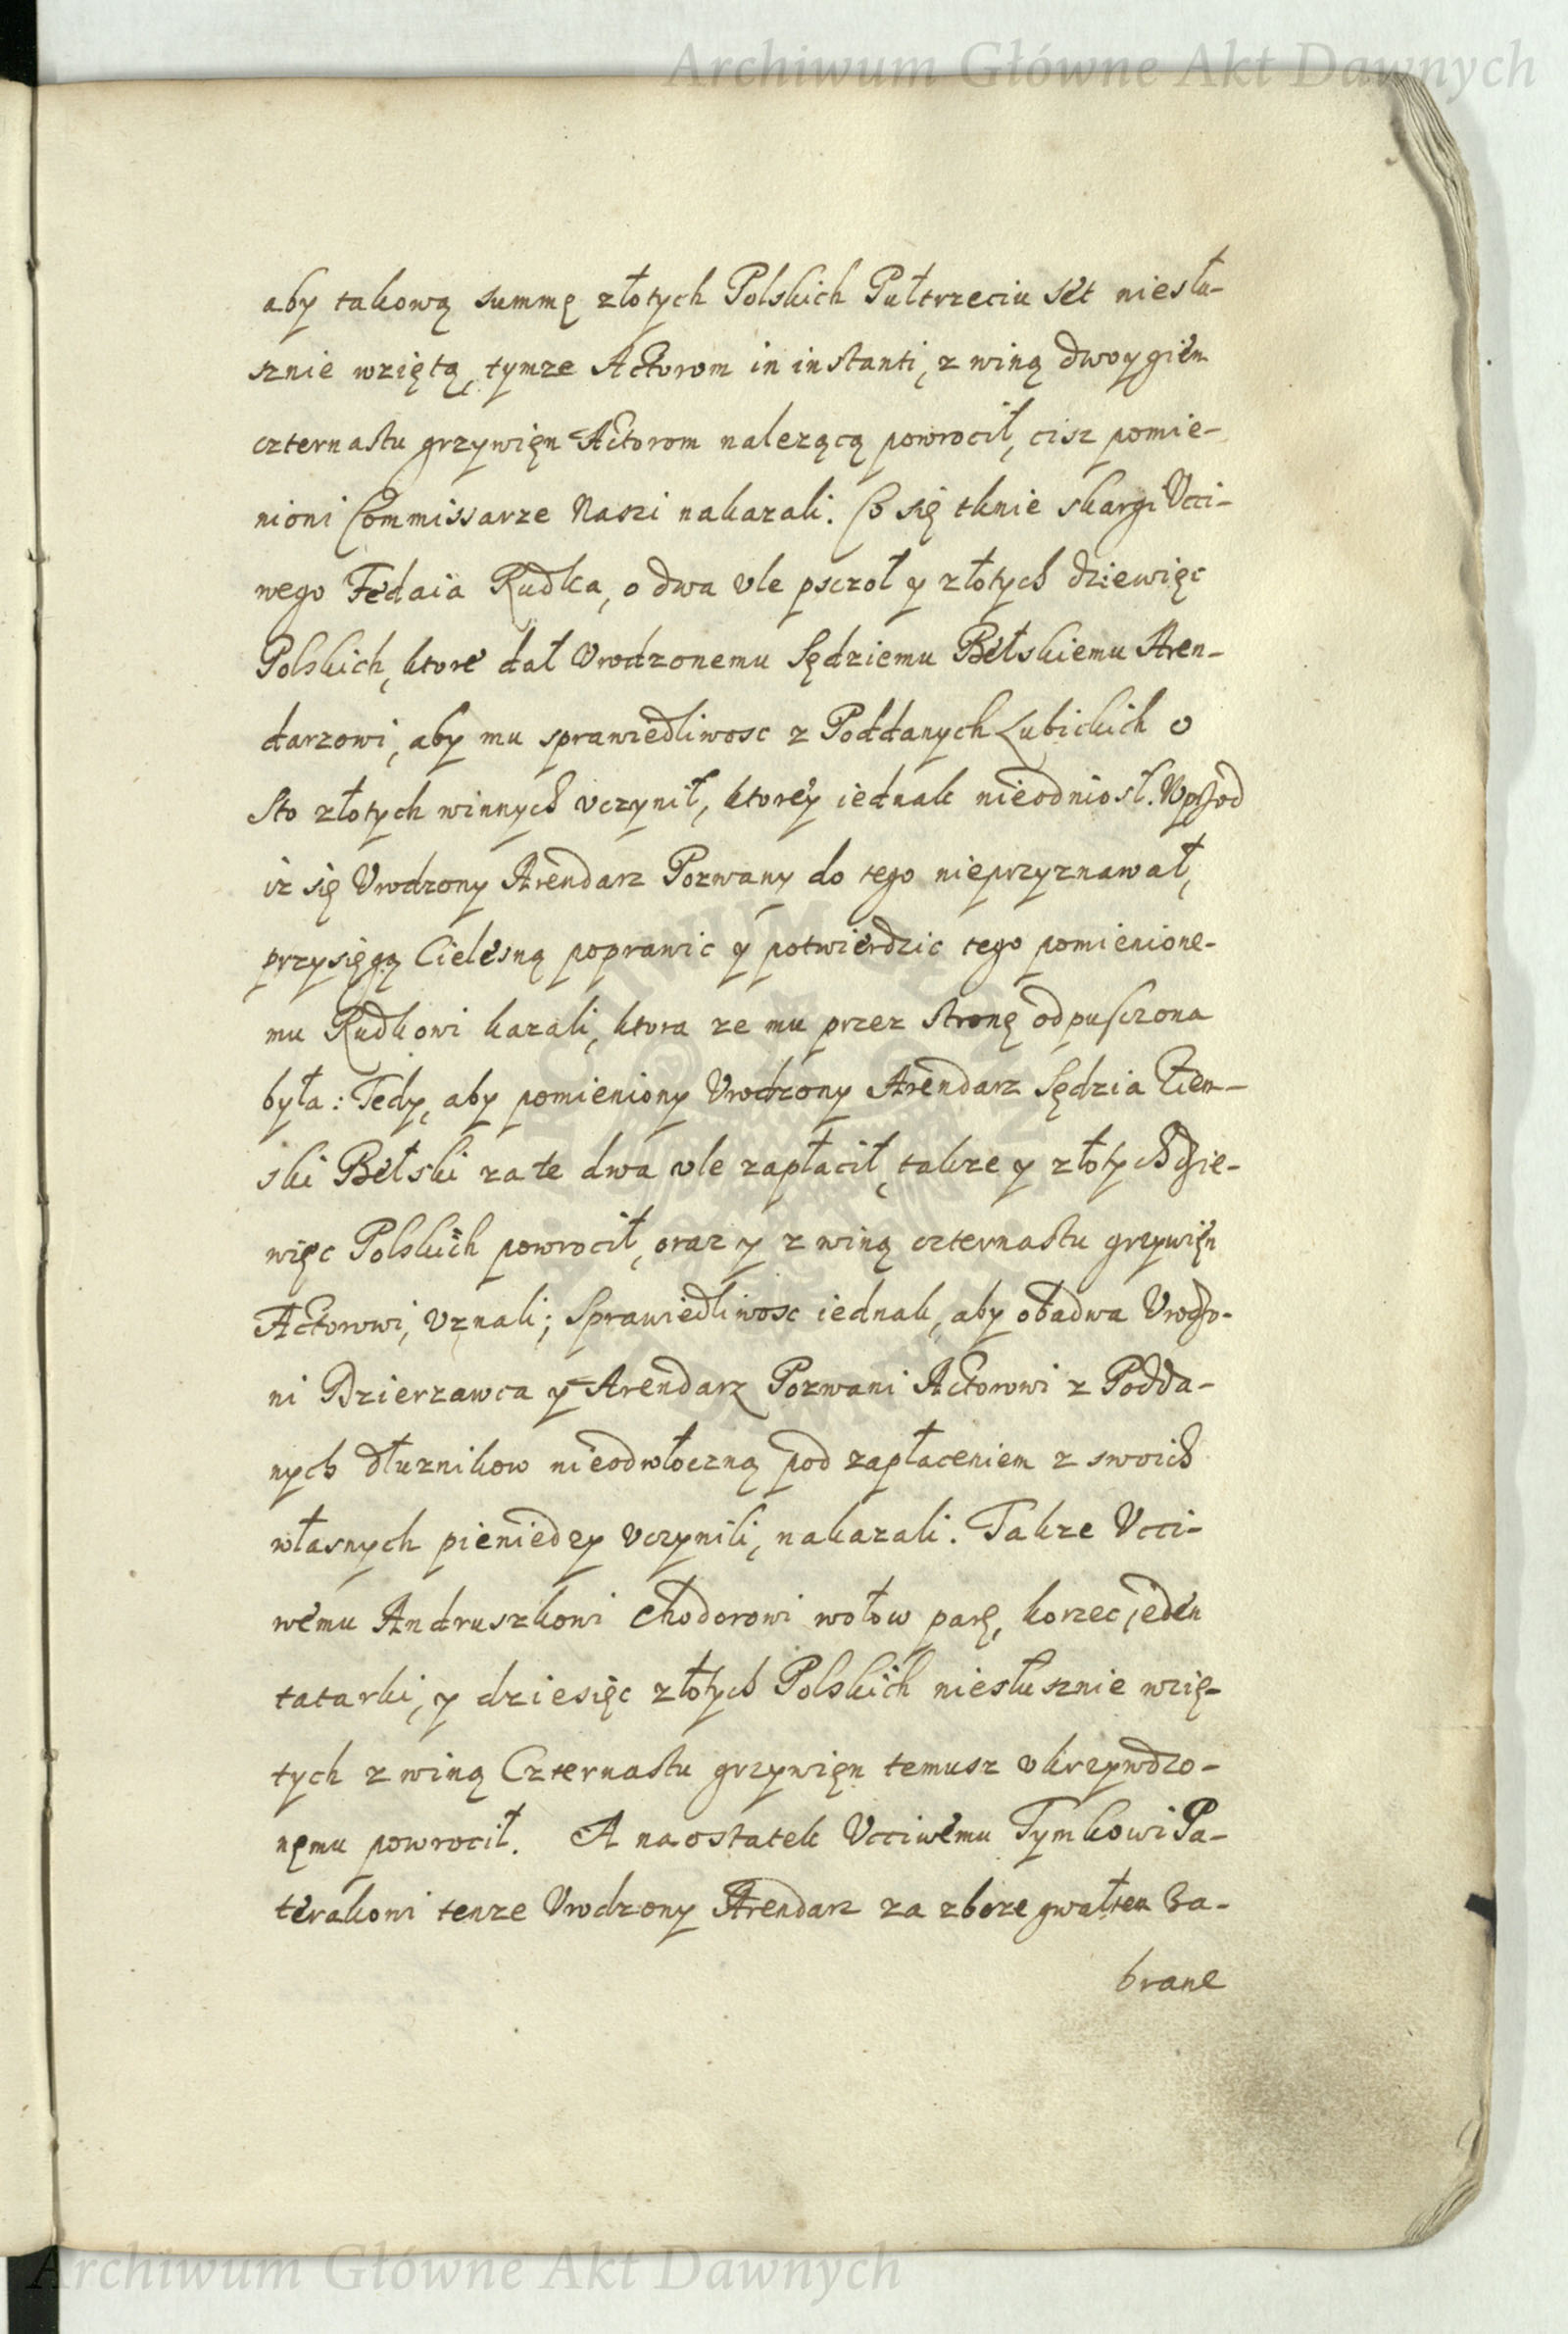 Archiwum Główne Akt Dawnych
aby takową summę złotych Polskich Pułtrzeciu set niesłu-
sznie wziętą, tymze Actorom in instanti, z winą dwoygiem
czternastu grzywięn Actorom nalezącą powrocił, cisz pomie-
nioni Commissarze Naszi nakazali. Co się tknie skargi Vcci-
wego Fedaia Rudka, o dwa vle psczoł y złotych dziewięc
Polskich, ktore dał Vrodzonemu Sędziemu Bełskiemu Aren-
darzowi, aby mu sprawiedliwosc z Poddanych Lubickich o
sto złotych winnych vczynił, ktorey iednak nieodniosł.
iz się Vrodzony Arendarz Pozwany do tego nieprzyznawał,
przysięgą Cielesną poprawic y potwierdzic tego pomienione-
mu Rudkowi kazali, ktora ze mu przez stronę odpusczona
była: Tedy, aby pomieniony Vrodzony Arendarz Sędzia Ziem-
ski Bełski za te dwa vle zapłacił, takze y złotych dzie-
więc Polskich powrocił, oraz y z winą czternastu grzywięn
Actorowi, vznali; Sprawiedliwosc iednak, aby obadwa Vrodzo-
ni Dzierzawca y Arendarz Pozwani Actorowi z Podda-
nych dłuznikow nieodwłoczną pod zapłaceniem z swoich
własnych pieniedzy vczynili, nakazali. Takze Vcci-
wemu Andruszkowi Chodorowi wołow parę, korzec ieden
tatarki, y dziesięc złotych Polskich niesłusznie wzię-
tych z winą Czternastu grzywięn temusz vkrzywdzo-
nemu powrocił. A na ostatek Vcciwemu Tymkowi Pa-
terakowi tenze Vrodzony Arendarz za zboze gwałtem za-
brane
Archiwum Główne Akt Dawnych